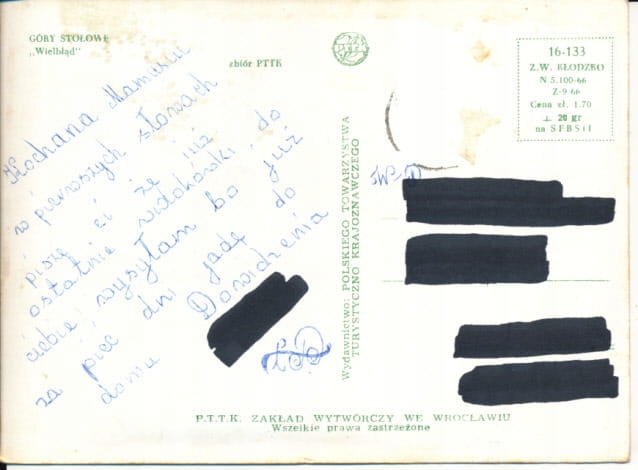 GÓRY STOŁOWE
„Wielbłąd"
zbiór PTTK
16-133
Z.W. KŁODZKO
N 5.100-66
Z-9-66
Cena zł. 1.70
+ 20 gr
na SFBSiI
Kochana Mamusiu
w pierwszych słowach
piszę ci że już
ostatnie widokówki do
ciebie wysyłam bo już
za pięć dni jadę do
domu Dowidzenia
Wydawnictwo: POLSKIEGO TOWARZYSTWA
TURYSTYCZNO KRAJOZNAWCZEGO
P.T.T.K. ZAKŁAD WYTWÓRCZY WE WROCŁAWIU
Wszelkie prawa zastrzeżone